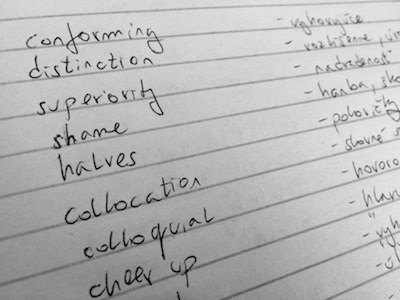 conforming - vyhovujúce
distinction - rozlíšenie,
superiority - nadradenosť
shame - hanba,
halves - polovičky
collocation - slovné
colloquial
cheer up